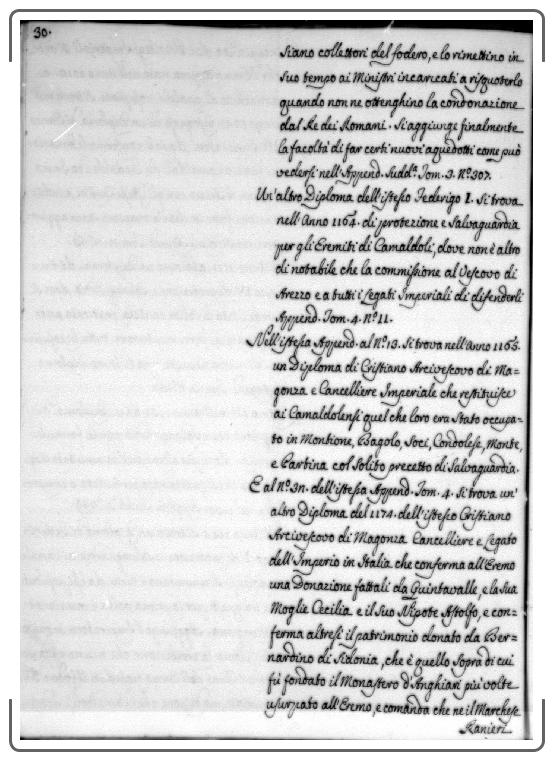 30.
siano collettori del fodero, e lo rimettino in
suo tempo ai Ministri incaricati a risquoterlo
quando non ne ottenghino la condonazione
dal Re dei Romani. Si aggiunge finalmente
la facoltà di far certi nuovi aquedotti come può
vedersi nell'Append. sudd.ª Tom. 3. Nº 307.
Un'altro Diploma dell'istesso Federigo I. si trova
nell'Anno 1164. di protezione e Salvaguardia
per gli Eremiti di Camaldoli, dove non è altro
di notabile che la commissione al Vescovo di
Arezzo e a tutti i Legati Imperiali di difenderli
Append. Tom. 4. Nº 11.
Nell'istessa Append. al Nº 13. si trova nell'Anno 1165.
un Diploma di Cristiano Arcivescovo di Ma=
gonza e Cancelliere Imperiale che restituisce
ai Camaldolensi quel che loro era stato occupa=
to in Montione, Bagolo, Soci, Condolese, Monte,
e Partina col solito precetto di Salvaguardia.
E al Nº 37. dell'istessa Append. Tom. 4. si trova un'
altro Diploma del 1174. dell'istesso Cristiano
Arcivescovo di Magonza Cancelliere e Legato
dell'Imperio in Italia che conferma all'Eremo
una Donazione fattali da Guintavalle, e la sua
Moglie Cecilia e il suo Nipote Astolfo, e con=
ferma altresì il patrimonio donato da Ber=
nardino di Sidonia, che è quello sopra di cui
fù fondato il Monastero d'Anghiari più volte
usurpato all'Eremo, e comanda che ne il Marchese
Ranieri